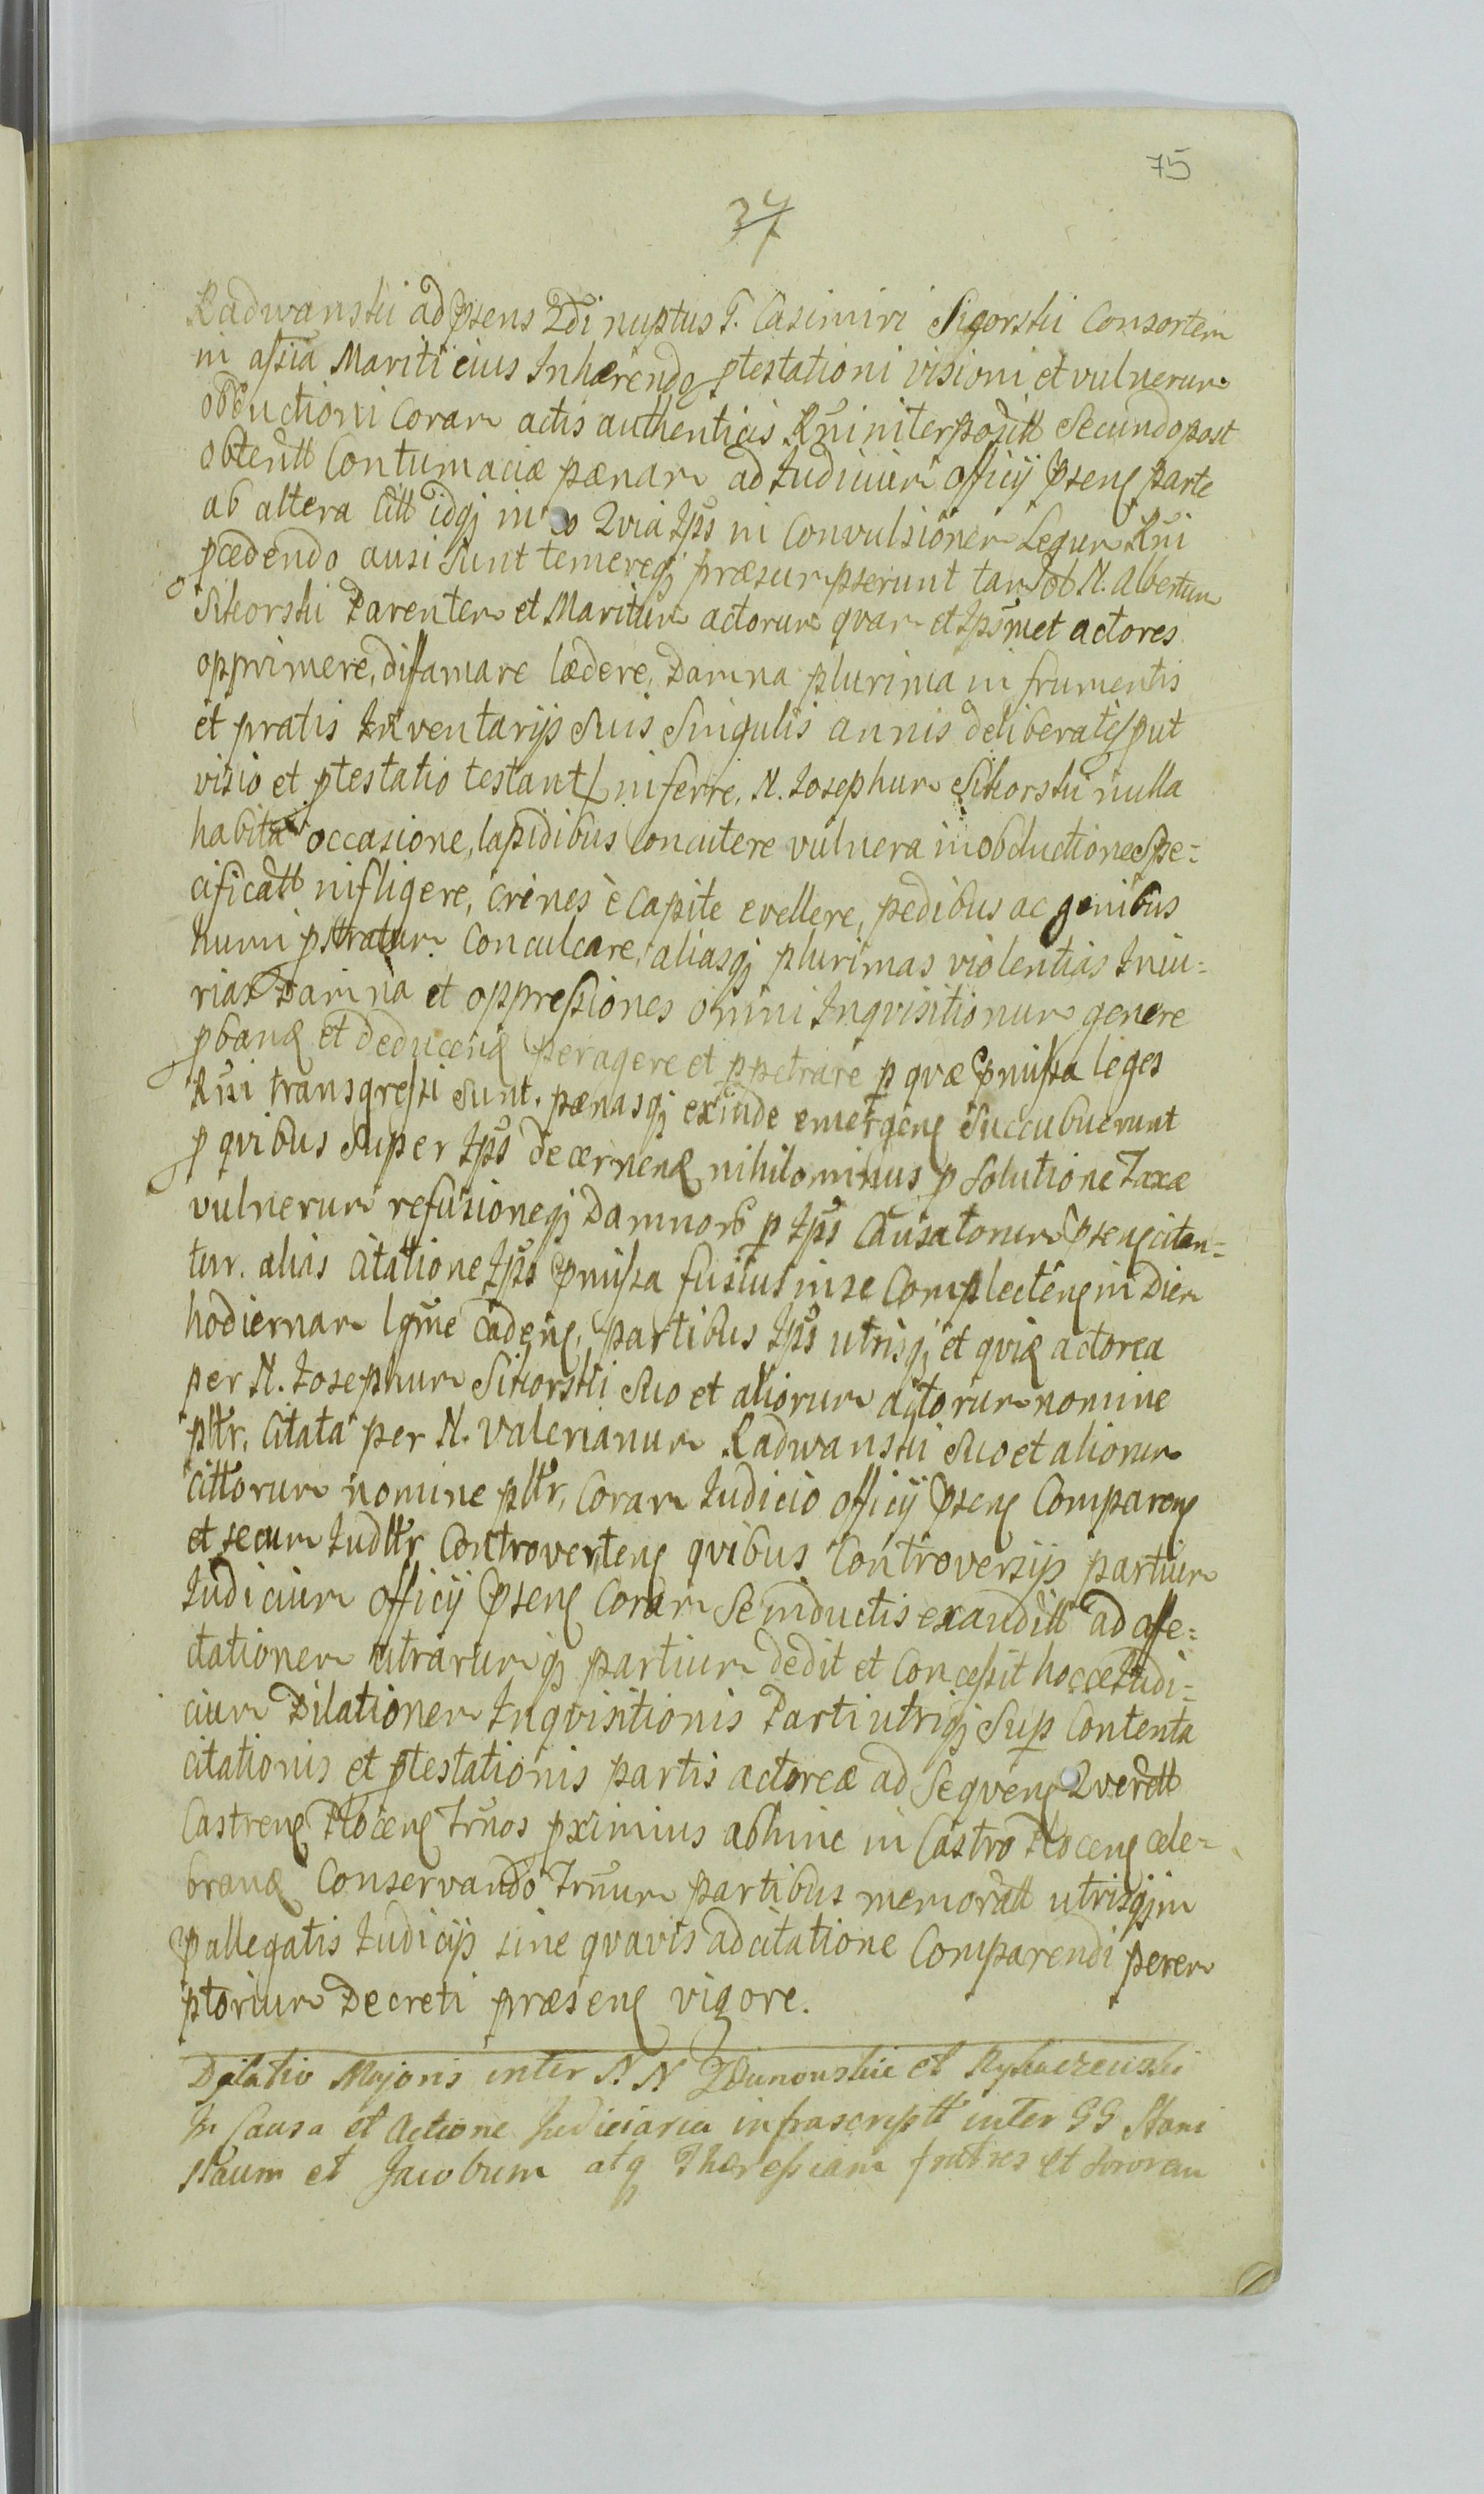 75
37
Radwanski ad psens 2di nuptus G. Casimiri Sigorski Consortem
in assia Mariti eius Inhærendo ptestationi visioni et vulnerum
obductioni Coram actis authenticis Rni interpositt Secundo post
obtentt Contumaciæ pænam ad Iudicium officij psenς parte
ab altera Citt idqȝ in eo Qvia Ips in Convulsionem Legum Rni
pcedendo ausi sunt temereqȝ præsumpserunt tam Sob N. Albertum
Sikorski Parentem et Maritum actorum qvam et Ipsmet actores
opprimere, diffamare lædere, Damna plurima in frumentis
et pratis Inventarijs suis singulis annis deliberate/put
visio et ptestatio testant/ inferre, N. Iosephum Sikorski nulla
habita occasione, lapidibus concutere vulnera in obductione Spe=
cificatt infligere, crines è Capite evellere, pedibus ac genibus
humi pstratum Conculcare, aliasqȝ plurimas violentias Iniu=
rias Damna et oppressiones omni Inqvisitionum genere
pbanς et deducenς peragere et ppetrare p qvæ pmissa leges
Rni transgressi sunt. pænasqȝ exinde emergenς Succubuerunt
p qvibus super Ips decernenς nihilominus p Solutione Taxæ
vulnerum refusioneqȝ Damnorb p Ips Causatorum psenς citan=
tur. alias Citatione Ips pmissa fusius in se Complectenς in Diem
hodiernam lgme cadenς, partibus Ips utrisqȝ et qviς actorea
per N. Iosephum Sikorski Suo et aliorum actorum nomine
pltr. Citata per N. Valerianum Radwanski Suo et aliorum
cittorum nomine pltr, Coram Iudicio officij psenς Comparenς
et secum Iudltr Controvertenς qvibus Controversijs partium
Iudicium officij psenς Coram Se inductis exauditt ad affe=
ctationem utrarumqȝ partium dedit et Concessit hocce Iudi=
cium Dilationem Inqvisitionis Parti utriqȝ Sup Contenta
citationis et ptestationis partis actoreæ ad Seqvenς Qverett
Castrenς Plocenς Trnos pximius abhinc in Castro Plocenς cele=
branς Conservando Trnum partibus memoratt utrisqȝ in
pallegatis Iudicijs sine qvavis adcitatione Comparendi perem
ptorium Decreti præsenς vigore.
Dilatio Majoris inter N. N Zdunowskie et Rykaczewski
In Causa et Actione Judiciaria infrascriptt inter GG Stani
slaum et Jacobum atq Theressiam fratres et sororem